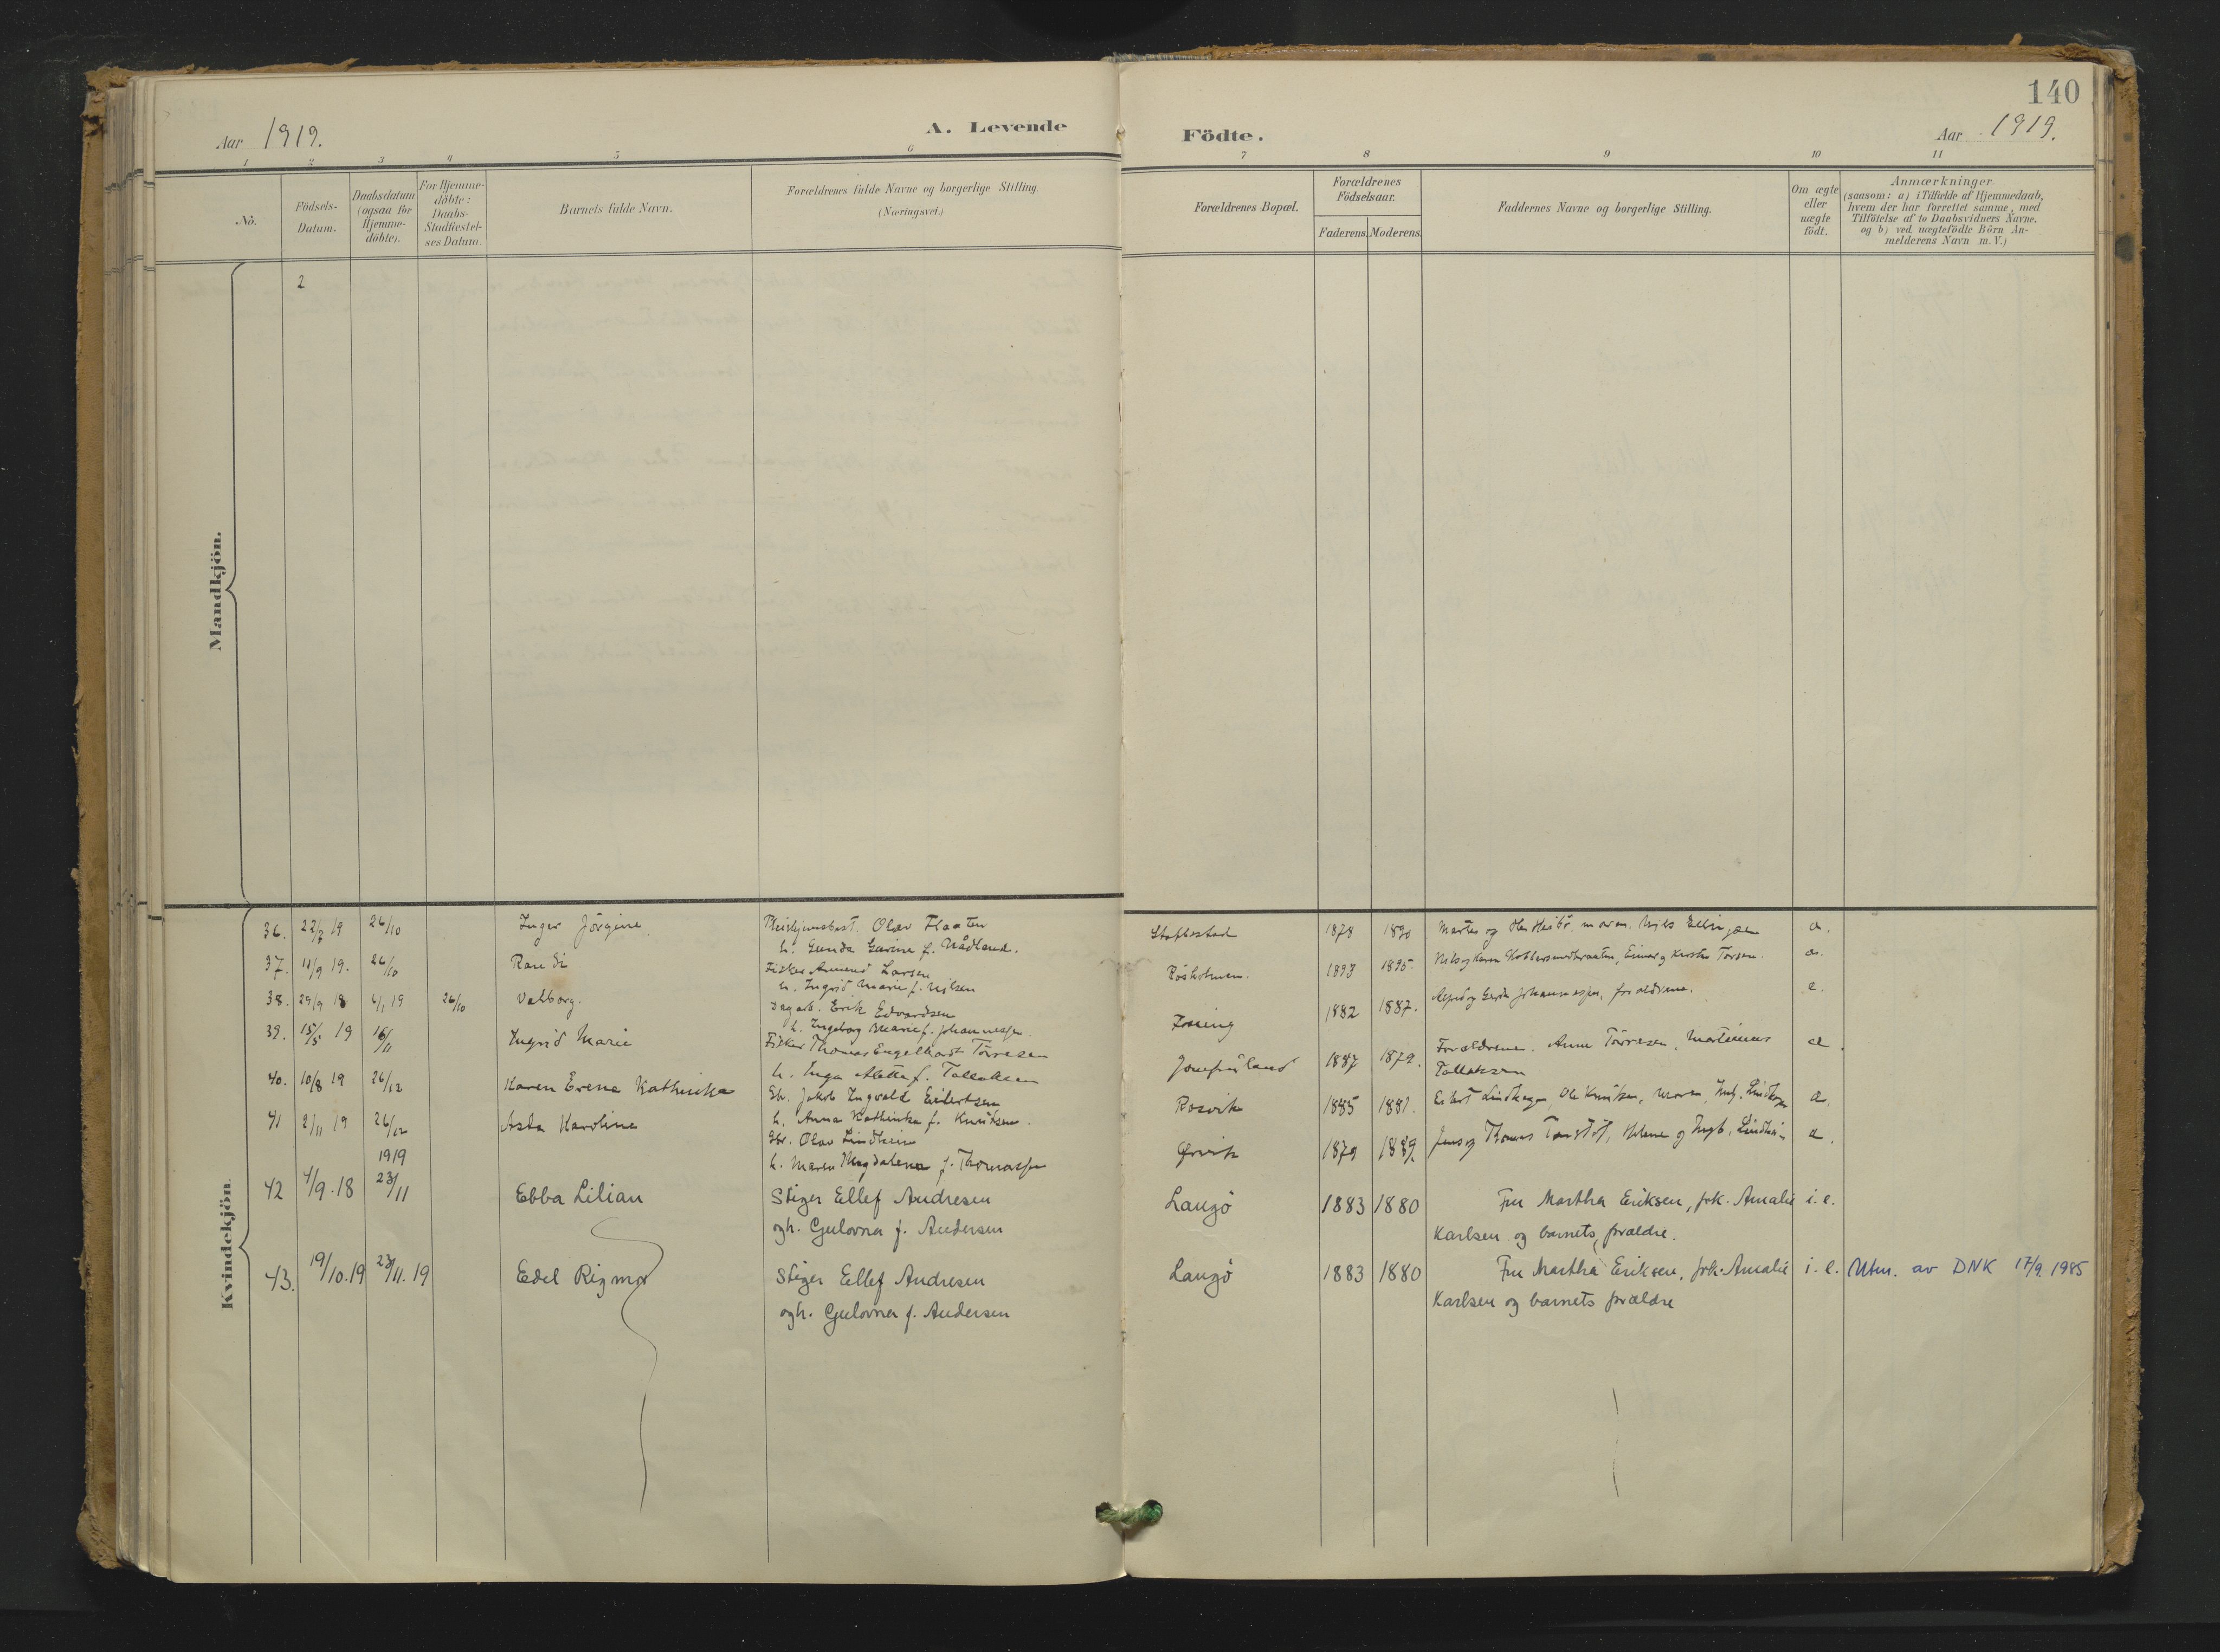 140
Aar 1919.
A. Levende Födte.
Aar 1919.
1 2 3 4 5 6 7 8 9 10 11
No.
Födsels-Datum.
Daabsdatum (ogsaa for Hjemme-döbte).
For Hjemme-döbte: Daabs-Stadfæstel-ses Datum.
Barnets fulde Navn.
Forældrenes fulde Navne og borgerlige Stilling. (Næringsvei.)
Forældrenes Bopæl.
Forældrenes Födselsaar.
Faderens. Moderens.
Faddernes Navne og borgerlige Stilling.
Om ægte eller uægte födt.
Anmærkninger
(saasom: a) i Tilfælde af Hjemmedaab,
hvem der har forrettet samme, med
Tilföielse af to Daabsvidners Navne.
og b) ved uægtefödte Börn An-
melderens Navn m. V.)
Mandkjön.
2
Kvindekjön.
36. 22/7 19 26/10 Inger Jörgine Olav Flaaten 1878 1890 Nils
h. Gunda Garine f. Nådland.
37. 11/9 19. 26/10 Randi Fisker Amund Larsen Rösholmen. 1893 1895. Nils og Karen Einar og Kirsten Torsen. æ.
h. Ingrid Marie f. Nilsen
38. 29/9 18 6/1 19 26/10 Valborg. Dagarb. Erik Edvardsen Fossing 1882 1887. Alfred og Gerda Johannessen, forældrene. e.
h. Ingeborg Marie f. Johannessen
39. 15/5 19 16/11 Ingrid Marie Fisker Thomas Engelhart Törresen Josefinland 1887 1879. Forældrene. Anne Törresen, Martinius æ.
h. Inga Aletta f. Tallaksen Tallaksen
40. 10/8 19 26/12 Karen Erene Kathinka Jakob Ingvald Eilertsen Rosvik 1885 1881. Eilert Lindhagen, Ole Knutsen, Maren, Ingb. Lindhagen æ.
h. Anna Kathinka f. Knutsen.
41 2/11 19 26/12 Asta Karoline Olav Lindheim Ørvik 1879 1889. Jens og Thomas Helene og Ingb. Lindheim æ.
1919 h. Maren Magdalena f. Thomassen
42 4/9.18 23/11 Ebba Lilian Stiger Ellef Andresen Langö 1883 1880 Fru Martha Eriksen, frk. Amalie i. e.
ogh. Gulovna f. Andersen Karlsen og barnets forældre.
43. 19/10.19 23/11.19 Edel Rigmor Stiger Ellef Andresen Langö 1883 1880 Fru Martha Eriksen, frk. Amalie i. e. Utm. av DNK 17/9 1985
ogh. Gulovna f. Andersen Karlsen og barnets forældre